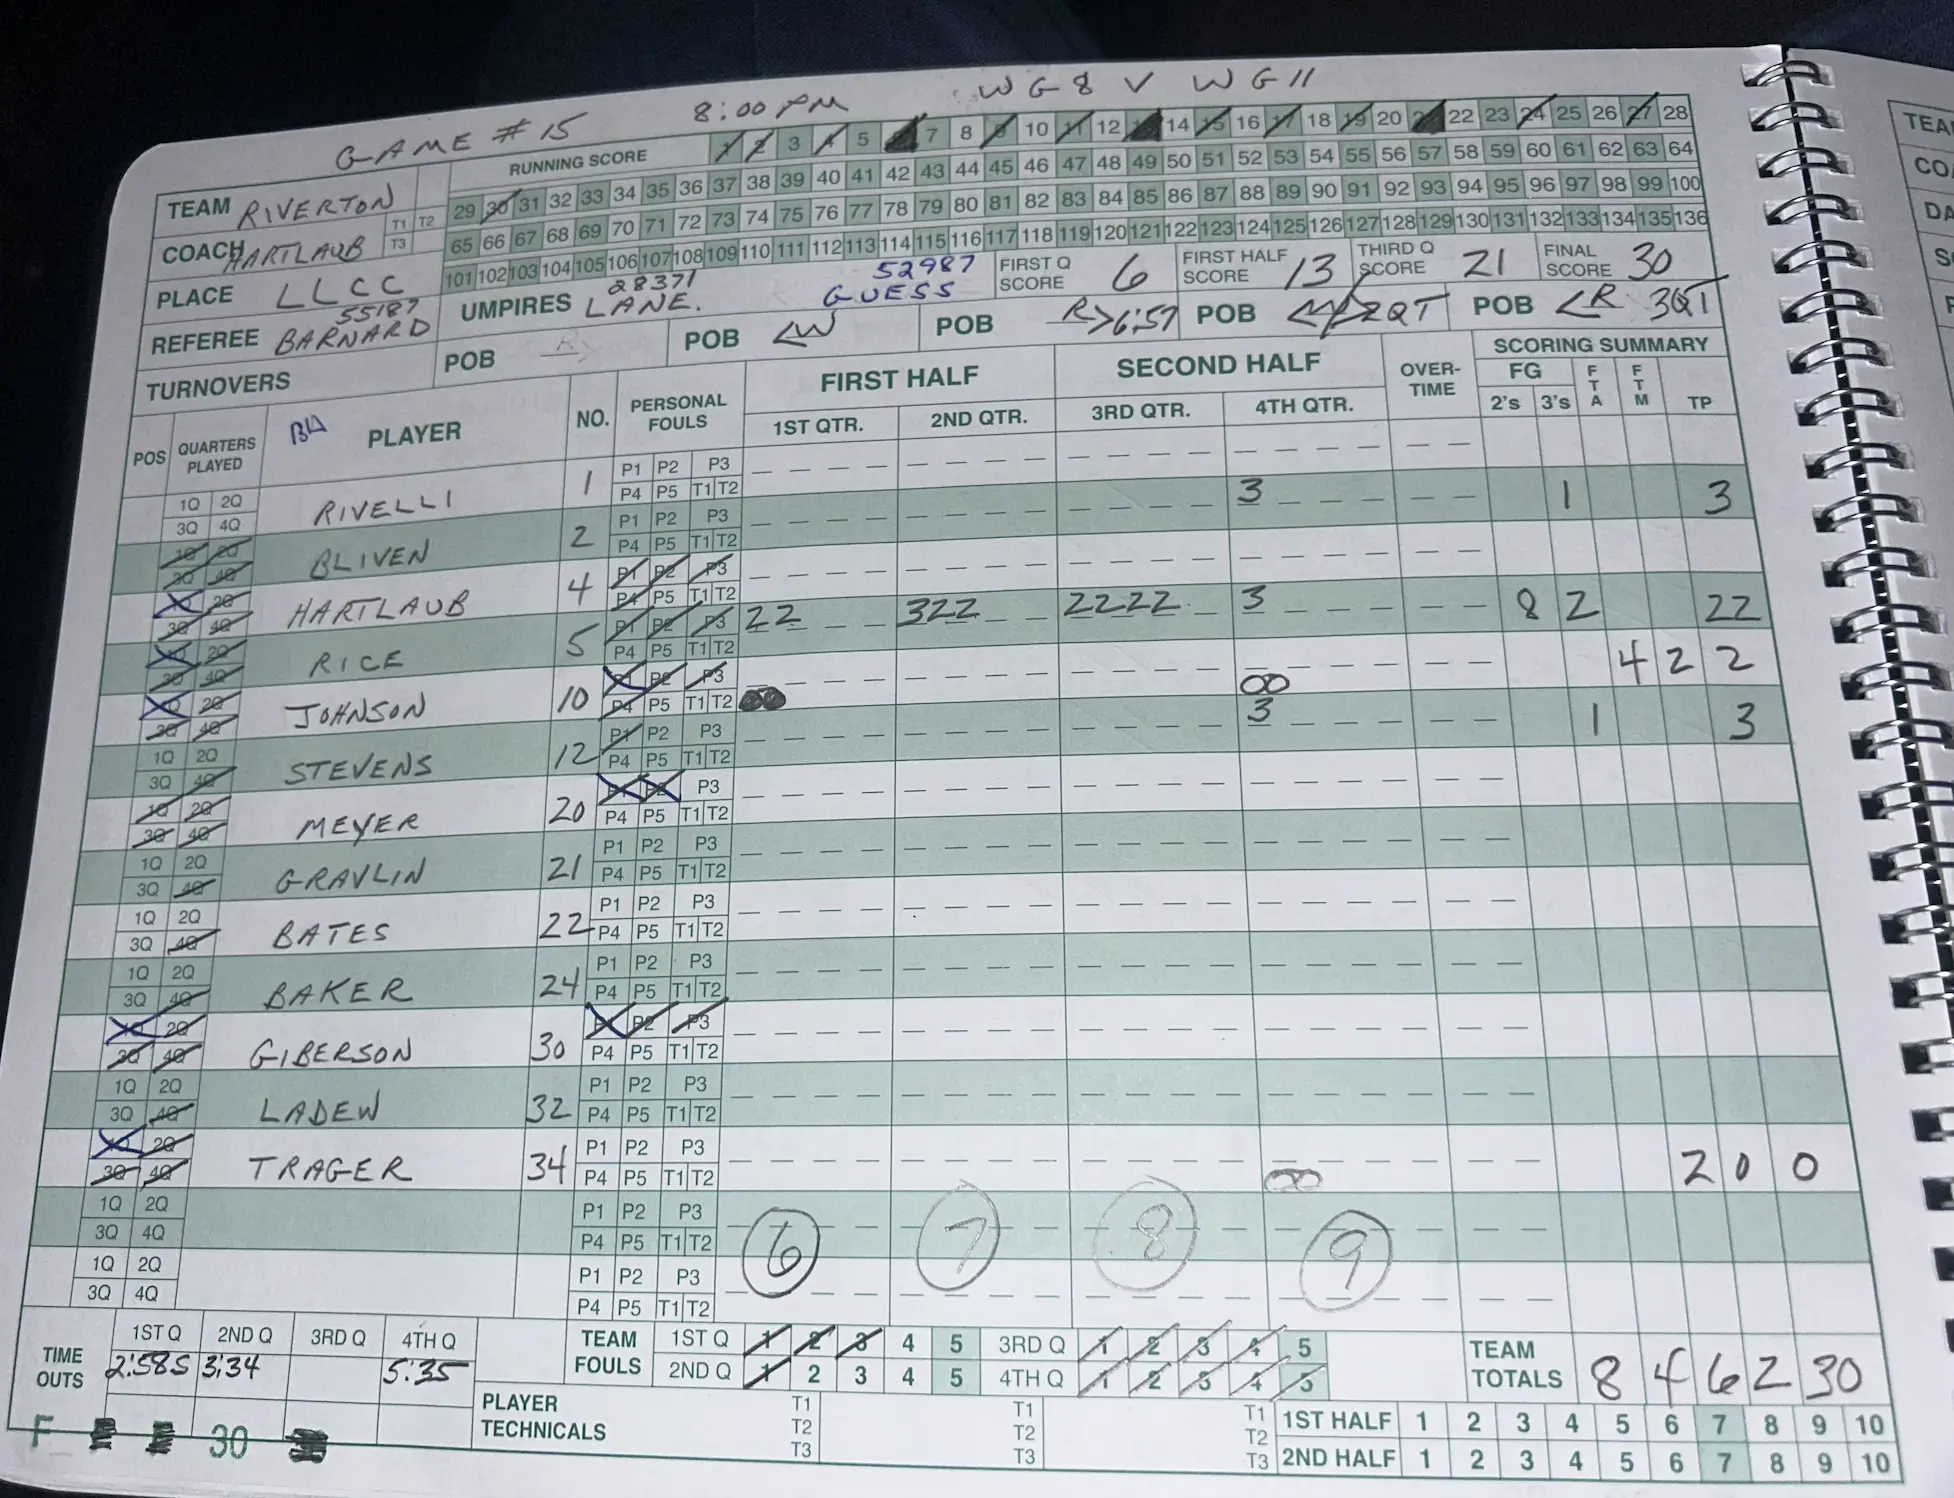 GAME #15 8:00 PM WG8 V WG11
TEAM RIVERTON T1 T2 RUNNING SCORE 1 2 3 4 5 7 8 9 10 11 12 14 15 16 17 18 19 20 22 23 24 25 26 27 28
29 30 31 32 33 34 35 36 37 38 39 40 41 42 43 44 45 46 47 48 49 50 51 52 53 54 55 56 57 58 59 60 61 62 63 64
COACH HARTLAUB T3 65 66 67 68 69 70 71 72 73 74 75 76 77 78 79 80 81 82 83 84 85 86 87 88 89 90 91 92 93 94 95 96 97 98 99 100
101 102 103 104 105 106 107 108 109 110 111 112 113 114 115 116 117 118 119 120 121 122 123 124 125 126 127 128 129 130 131 132 133 134 135 136
PLACE LLCC UMPIRES 28371 LANE. 52987 GUESS FIRST Q SCORE 6 FIRST HALF SCORE 13 THIRD Q SCORE 21 FINAL SCORE 30
REFEREE 55187 BARNARD POB R> POB <W POB R>6:57 POB 2QT POB <R 3QT
TURNOVERS FIRST HALF SECOND HALF OVER-TIME SCORING SUMMARY
POS QUARTERS PLAYED PLAYER NO. PERSONAL FOULS 1ST QTR. 2ND QTR. 3RD QTR. 4TH QTR. FG 2's 3's FTA FTM TP
1Q 2Q P1 P2 P3
3Q 4Q RIVELLI 1 P4 P5 T1 T2
1Q 2Q P1 P2 P3
3Q 4Q BLIVEN 2 P4 P5 T1 T2 3 1 3
1Q 2Q P1 P2 P3
3Q 4Q HARTLAUB 4 P4 P5 T1 T2
1Q 2Q P1 P2 P3
3Q 4Q RICE 5 P4 P5 T1 T2 22 322 2222 3 8 2 22
1Q 2Q P1 P2 P3
3Q 4Q JOHNSON 10 P4 P5 T1 T2 4 2 2
1Q 2Q P1 P2 P3
3Q 4Q STEVENS 12 P4 P5 T1 T2 3 1 3
1Q 2Q P1 P2 P3
3Q 4Q MEYER 20 P4 P5 T1 T2
1Q 2Q P1 P2 P3
3Q 4Q GRAVLIN 21 P4 P5 T1 T2
1Q 2Q P1 P2 P3
3Q 4Q BATES 22 P4 P5 T1 T2
1Q 2Q P1 P2 P3
3Q 4Q BAKER 24 P4 P5 T1 T2
1Q 2Q P1 P2 P3
3Q 4Q GIBERSON 30 P4 P5 T1 T2
1Q 2Q P1 P2 P3
3Q 4Q LADEW 32 P4 P5 T1 T2
1Q 2Q P1 P2 P3
3Q 4Q TRAGER 34 P4 P5 T1 T2 2 0 0
1Q 2Q P1 P2 P3
3Q 4Q P4 P5 T1 T2 6 7 8 9
1Q 2Q P1 P2 P3
3Q 4Q P4 P5 T1 T2
TIME OUTS 1ST Q 2ND Q 3RD Q 4TH Q TEAM FOULS 1ST Q 1 2 3 4 5 3RD Q 1 2 3 4 5 TEAM TOTALS 8 4 6 2 30
2:585 3:34 5:35 2ND Q 1 2 3 4 5 4TH Q 1 2 3 4 5
F 30 PLAYER TECHNICALS T1 T2 T3 T1 T2 T3 T1 T2 T3
1ST HALF 1 2 3 4 5 6 7 8 9 10
2ND HALF 1 2 3 4 5 6 7 8 9 10